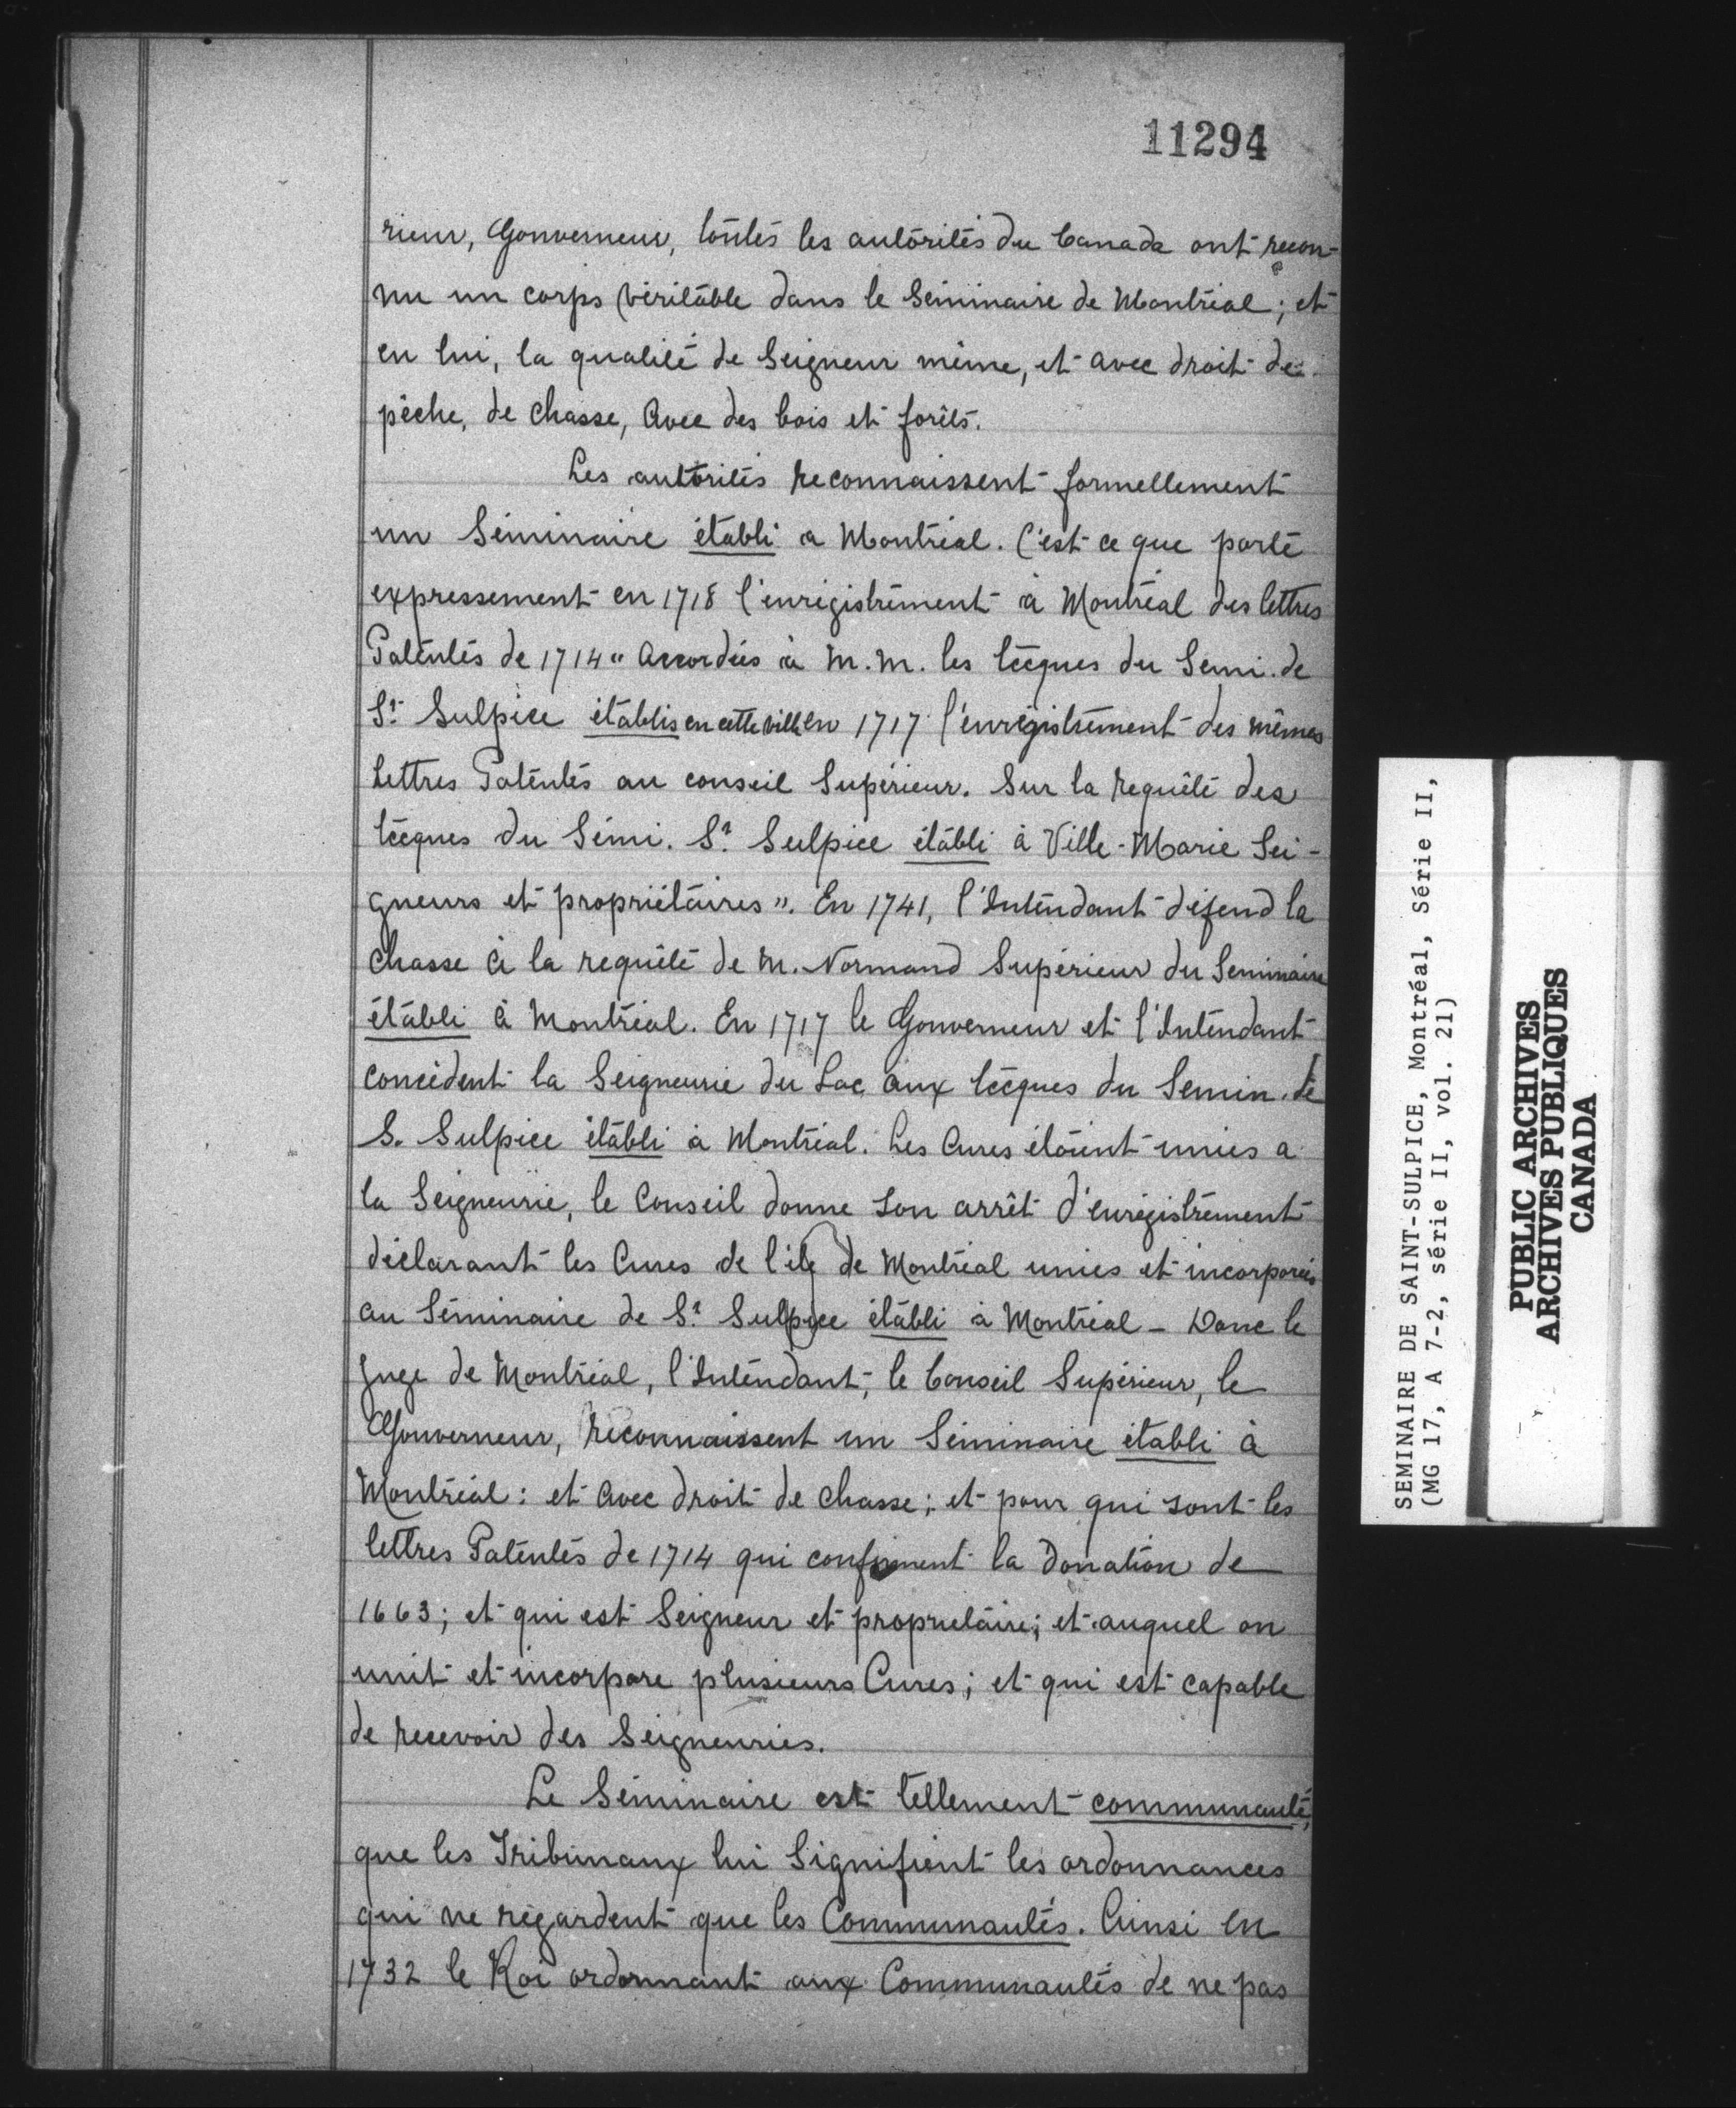 11294
rieur, Gouverneur, toutes les autorités du Canada ont recon-
nu un corps véritable dans le Séminaire de Montréal ; et
en lui, la qualité de Seigneur même, et avec droit de
pêche, de chasse, avec des bois et forêts.
Les autorités reconnaissent formellement
un Séminaire établi a Montréal. C'est ce que porte
expressement en 1718 l'enrégistrement à Montréal des lettres
Patentes de 1714 " accordées à M.M. les Ecques du Semi. de
St Sulpice établis en cette ville en 1717 l'enrégistrement des mêmes
lettres Patentes au conseil Supérieur. Sur la requête des
Ecques du Sémi. St Sulpice établi à Ville-Marie Sei-
gneurs et propriétaires ". En 1741, l'Intendant défend la
chasse à la requête de M. Normand Supérieur du Seminaire
établi à Montréal. En 1717 le Gouverneur et l'Intendant
concèdent la Seigneurie du Lac aux Ecques du Semin. de
S. Sulpice établi à Montréal. Les Cures étaient unies a
la Seigneurie, le Conseil donne son arrêt d'enrégistrement
déclarant les Cures de l'ile de Montréal unies et incorporées
au Séminaire de St Sulpice établi à Montréal - Donc le
Juge de Montréal, l'Intendant, le Conseil Supérieur, le
Gouverneur, reconnaissent un Séminaire établi à
Montréal : et avec droit de chasse ; et pour qui sont les
lettres Patentes de 1714 qui confirment la Donation de
1663 ; et qui est Seigneur et propriétaire ; et auquel on
unit et incorpore plusieurs Cures ; et qui est capable
de recevoir des Seigneuries.
Le Séminaire est tellement communauté,
que les Tribunaux lui signifient les ordonnances
qui ne régardent que les Communautés. Ainsi en
1732 le Roi ordonnant aux Communautés de ne pas
SEMINAIRE DE SAINT-SULPICE, Montréal, Série II,
(MG 17, A 7-2, série II, vol. 21)
PUBLIC ARCHIVES
ARCHIVES PUBLIQUES
CANADA